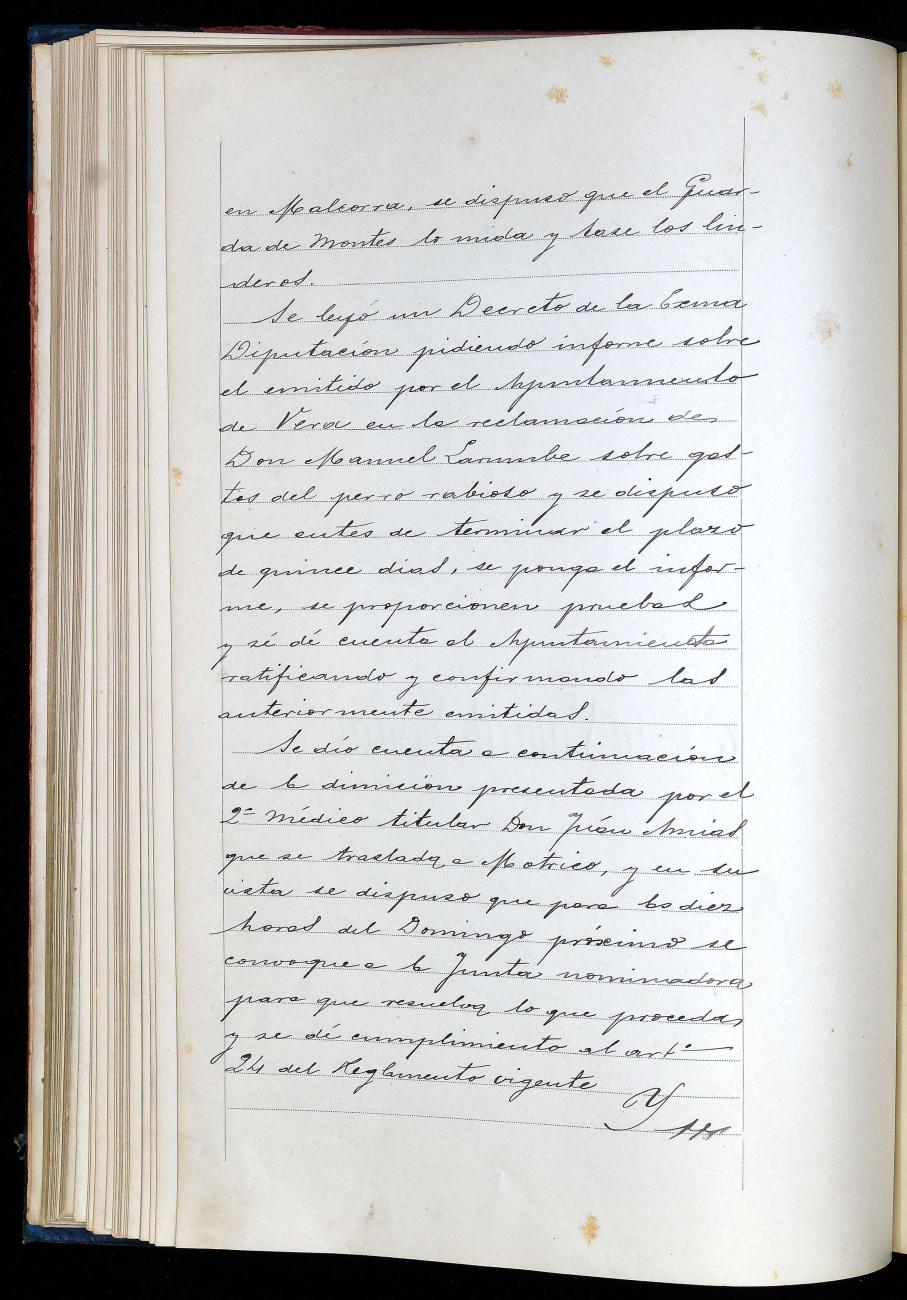 en Malcorra, se dispuso que el Guar-
da de Montes lo mida y tase los lin-
deros.
Se leyó un Decreto de la Exma
Diputación pidiendo informe sobre
el emitido por el Ayuntamiento
de Vera en la reclamación de
Don Manuel Larumbe sobre gas-
tos del perro rabioso y se dispuso
que antes de terminar el plazo
de quince dias, se ponga el infor-
me, se proporcionen pruebas
y sé dé cuenta al Ayuntamiento
ratificando y confirmando las
anteriormente emitidas.
Se dió cuenta a continuación
de la dimisión presentada por el
2º Médico titular Don Juán
que se traslada a Motrico, y en su
vista se dispuso que para las diez
horas del Domingo próximo se
convoque a la Junta nominadora
para que resuelva lo que proceda,
y se dé cumplimiento al artº
24 del Reglamento vigente
Y